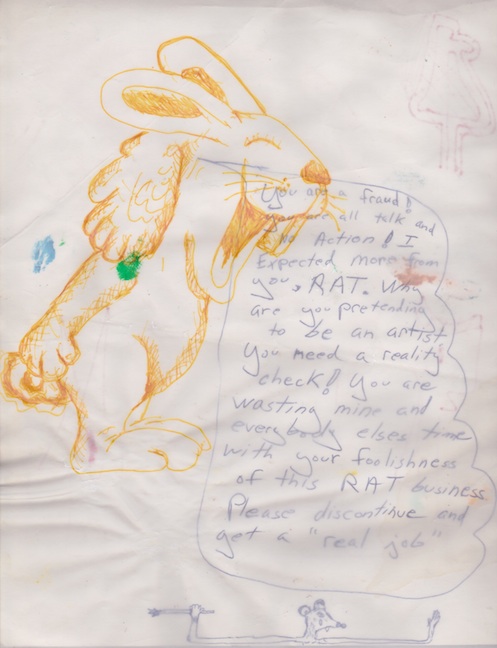 You are a fraud!
you are all talk and
No Action! I
Expected more from
you, RAT. Why
are you pretending
to be an artist
You need a reality
check! You are
wasting mine and
everybody elses time
with your foolishness
of this RAT business
Please discontinue and
get a "real job"